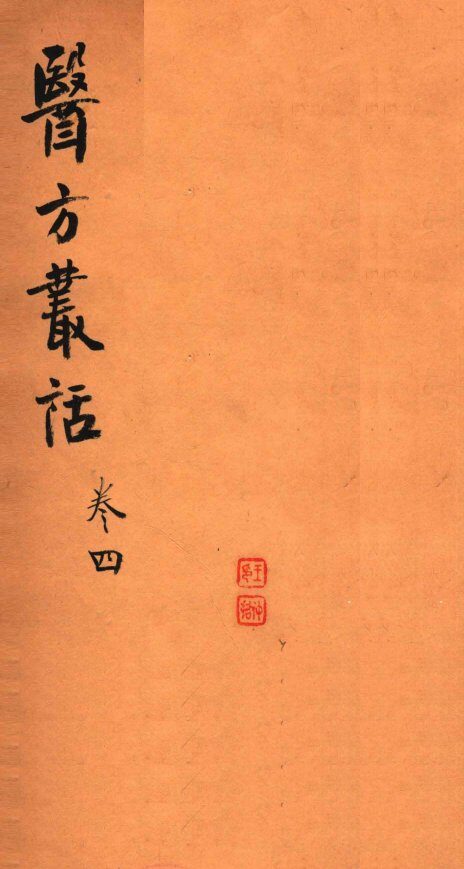 醫方叢話
卷四